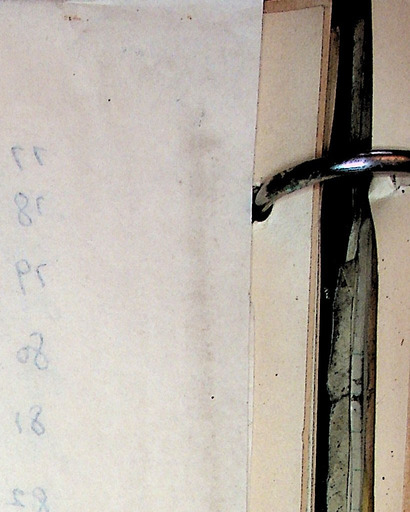 77
78
79
80
81
82